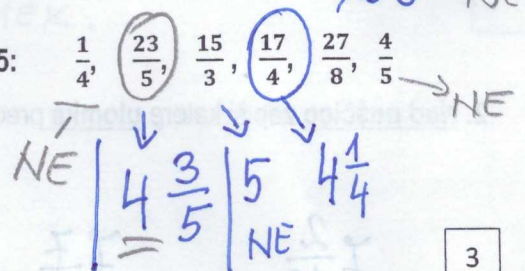 NE
5: 1/4, 23/5, 15/3, 17/4, 27/8, 4/5
NE
NE 4 3/5 5 4 1/4
NE
3